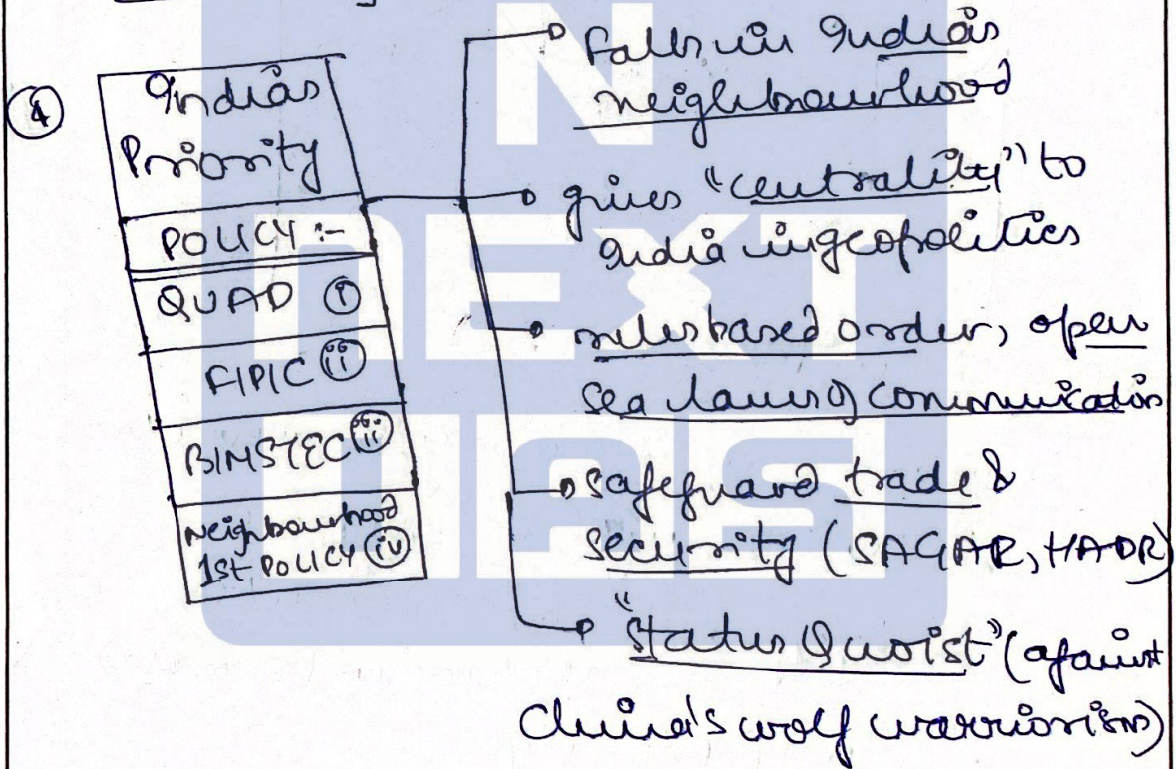 ④
India's
Priority
POLICY :-
QUAD ⓘ
FIPIC ⓘⓘ
BIMSTEC ⓘⓘⓘ
Neighbourhood
1st POLICY ⓘⓥ
Falls in India's
neighbourhood
gives "centrality" to
India in geopolitics
rules based order, open
sea lanes of communication
safeguard trade &
security (SAGAR, HADR)
"Status Quoist" (against
China's wolf warriorism)
NEXT
IAS